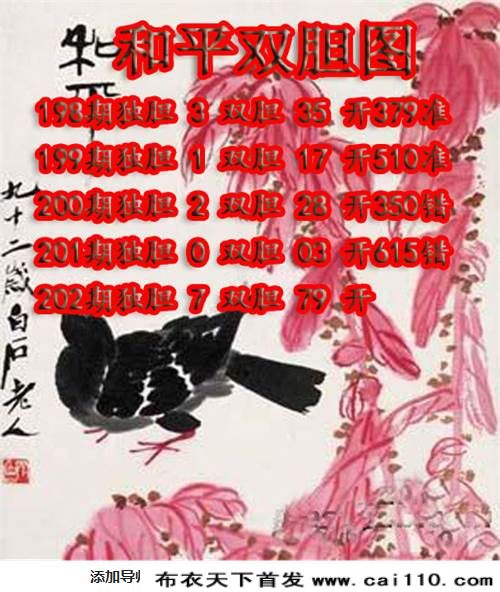 和平双胆图
198期独胆 3 双胆 35 开379准
199期独胆 1 双胆 17 开510准
200期独胆 2 双胆 28 开350错
201期独胆 0 双胆 03 开615错
202期独胆 7 双胆 79 开
和平
九十二岁白石老人
添加导
布衣天下首发 www.cai110.com